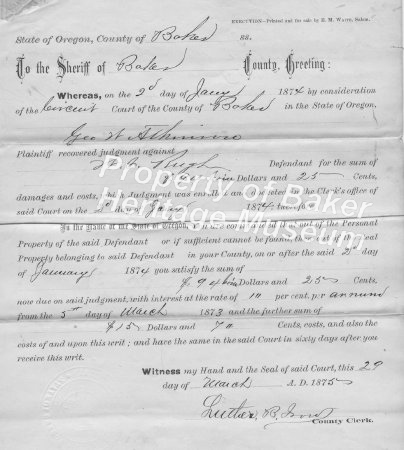 EXECUTION—Printed and for sale by E. M. Waite, Salem.
State of Oregon, County of Baker ss.
To the Sheriff of Baker County, Greeting:
Whereas, on the 2d day of Jany 1874 by consideration
of the Circuit Court of the County of Baker in the State of Oregon.
Geo W
Plaintiff recovered judgment against
Defendant for the sum of
Dollars and 25 Cents,
damages and costs, which Judgment was enrolled and docketed in the Clerk's office of
said Court on the 2d day of Jany 1874 therefore
In the Name of the State of Oregon, You are commanded that out of the Personal
Property of the said Defendant or if sufficient cannot be found, then out of the Real
Property belonging to said Defendant in your County, on or after the said 2d day
of January 1874 you satisfy the sum of
$94 Dollars and 25 Cents.
now due on said judgment, with interest at the rate of 10 per cent. per annum
from the 5th day of March 1873 and the further sum of
$15 Dollars and 70 Cents, costs, and also the
costs of and upon this writ; and have the same in the said Court in sixty days after you
receive this writ.
Witness my Hand and the Seal of said Court, this 29
day of March A. D. 1875
Luther B. Ison
County Clerk.
Property of Baker
Heritage Museum